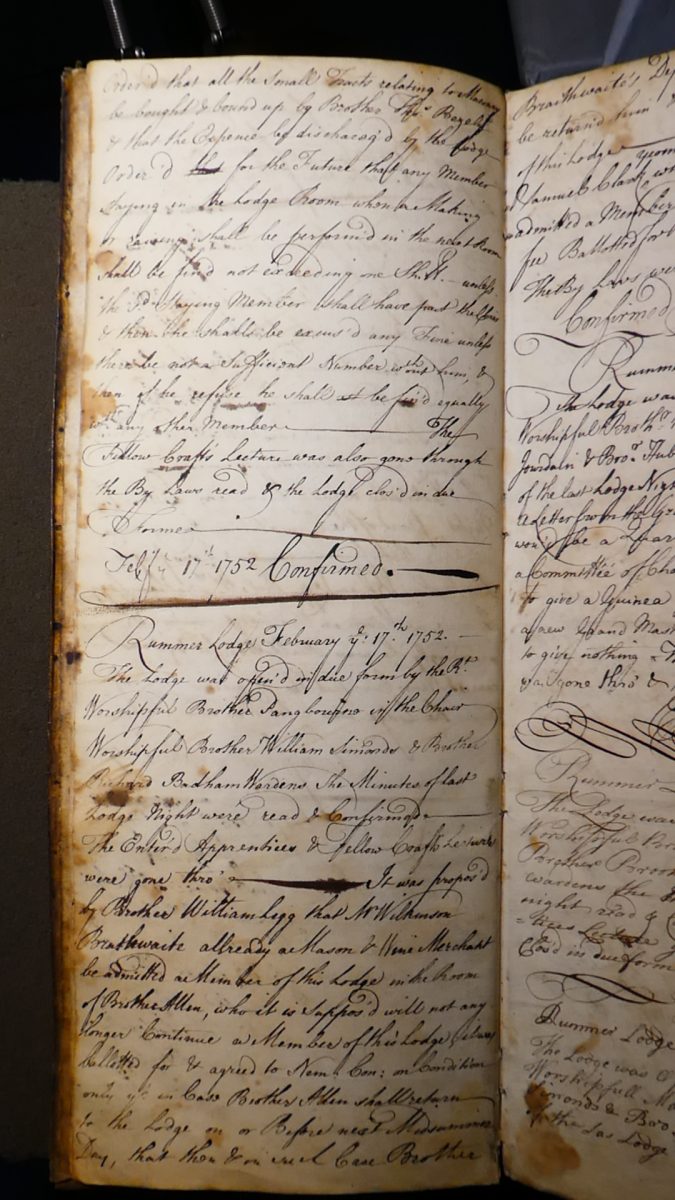 Order'd that all the Small Tracts relating to Masonry
be bought & bound up by Brother Thos.
& that the Expence be discharg'd by the Lodge
Order'd for the Future that any Member
Staying in the Lodge Room when a Making
or raising shall be perform'd in the next Room
shall be fin'd not exceeding one Shill. unless
the Sd. Staying Member shall have past the Chair
& then he shall be excus'd any Fine unless
there be not a Sufficient Number wthout him, &
then if he refuse he shall be fin'd equally
wth any other Member The
Fellow Crafts Lecture was also gone through
the By Laws read & the Lodge clos'd in due
Form
Feby ye 17th 1752 Confirmed.
Rummer Lodge February ye 17th 1752.
The Lodge was open'd in due form by the Rt.
Worshipful Brother Pangbourne in the Chair
Worshipful Brother William Simonds & Brother
Richard Badham Wardens The Minutes of last
Lodge Night were read & Confirmed
The Enter'd Apprentices & Fellow Crafts Lectures
were gone thro' It was propos'd
by Brother William Legg that Mr Wilkinson
Braithwaite allready a Mason & Wine Merchant
be admitted a Member of this Lodge in the Room
of Brother Allen, who it is suppos'd will not any
longer Continue a Member of this Lodge
ballotted for & agreed to Nem. Con: on Condition
only yt in Case Brother Allen shall return
to the Lodge on or Before next Midsummer
Day, that then & in such Case Brother
Braithwaite's
be return'd him
of this Lodge
Samuel Clark
admitted a Member
Ballotted for
The By Laws were
Confirmed
Rummer
The Lodge was
Worshipful Brothr
Jourdain & Bror.
of the last Lodge Night
a Letter from the
wou'd be a
a Committee of
to give a Guinea
a new Grand
to give nothing
gone thro' &
Rummer
The Lodge was
Worshipful
Brother
wardens the
night read &
clos'd in due form
Rummer Lodge
The Lodge was
Worshipfull
Simonds & Bro
the Las Lodge